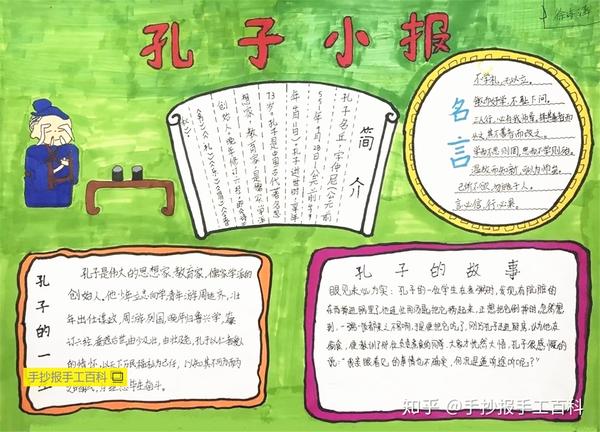 孔子小报
简介
孔子名丘,字仲尼(公元前
551年9月28日—公元前479
年4月11日),孔子逝世时,享年
73岁。孔子是中国古代著名思
想家、教育家,是儒家学派
创始人。晚年修订六经,即《诗》
名言
不学礼,无以立。
敏而好学,不耻下问。
三人行,必有我师焉,择其善者而
从之,其不善者而改之。
学而不思则罔,思而不学则殆。
温故而知新,可以为师矣。
己所不欲,勿施于人。
言必信,行必果。
孔子的一
孔子是伟大的思想家、教育家、儒家学派的
创始人,他少年立志向学,青年游学周边,壮
年出仕得政,周游列国,晚年归鲁兴学,
订六经,
的情怀,以天下万民福祉为己任,
手抄报手工百科
孔子的故事
眼见未必为实:孔子的一位学生在煮粥时,发现有肮脏的
东西掉进锅里,他连忙用汤匙把它捞起来,正想把它倒掉时,忽然想
到,一粥一饭都来之不易啊,于是便把它吃了,刚好孔子走进厨房,以为他在
偷食,便教训了那位负责煮食的同学,大家才恍然大悟,孔子很感慨的
说:“我亲眼看见的事情也不确实,何况是道听途听呢?”
知乎 @手抄报手工百科